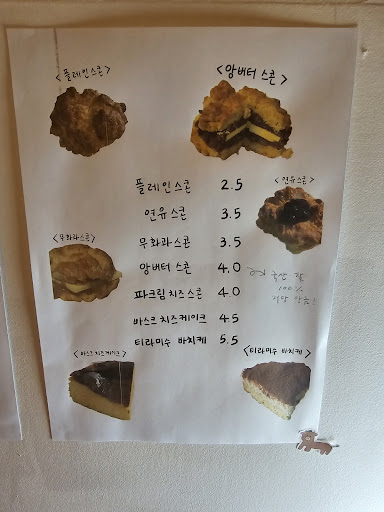 <플레인스콘>
<앙버터 스콘>
플레인스콘 2.5
<연유스콘>
연유스콘 3.5
<무화과스콘>
무화과스콘 3.5
앙버터 스콘 4.0
국산 팥
100%
파크림치즈스콘 4.0
바스크치즈케이크 4.5
티라미수 바치케 5.5
<바스크치즈케이크>
<티라미수 바치케>